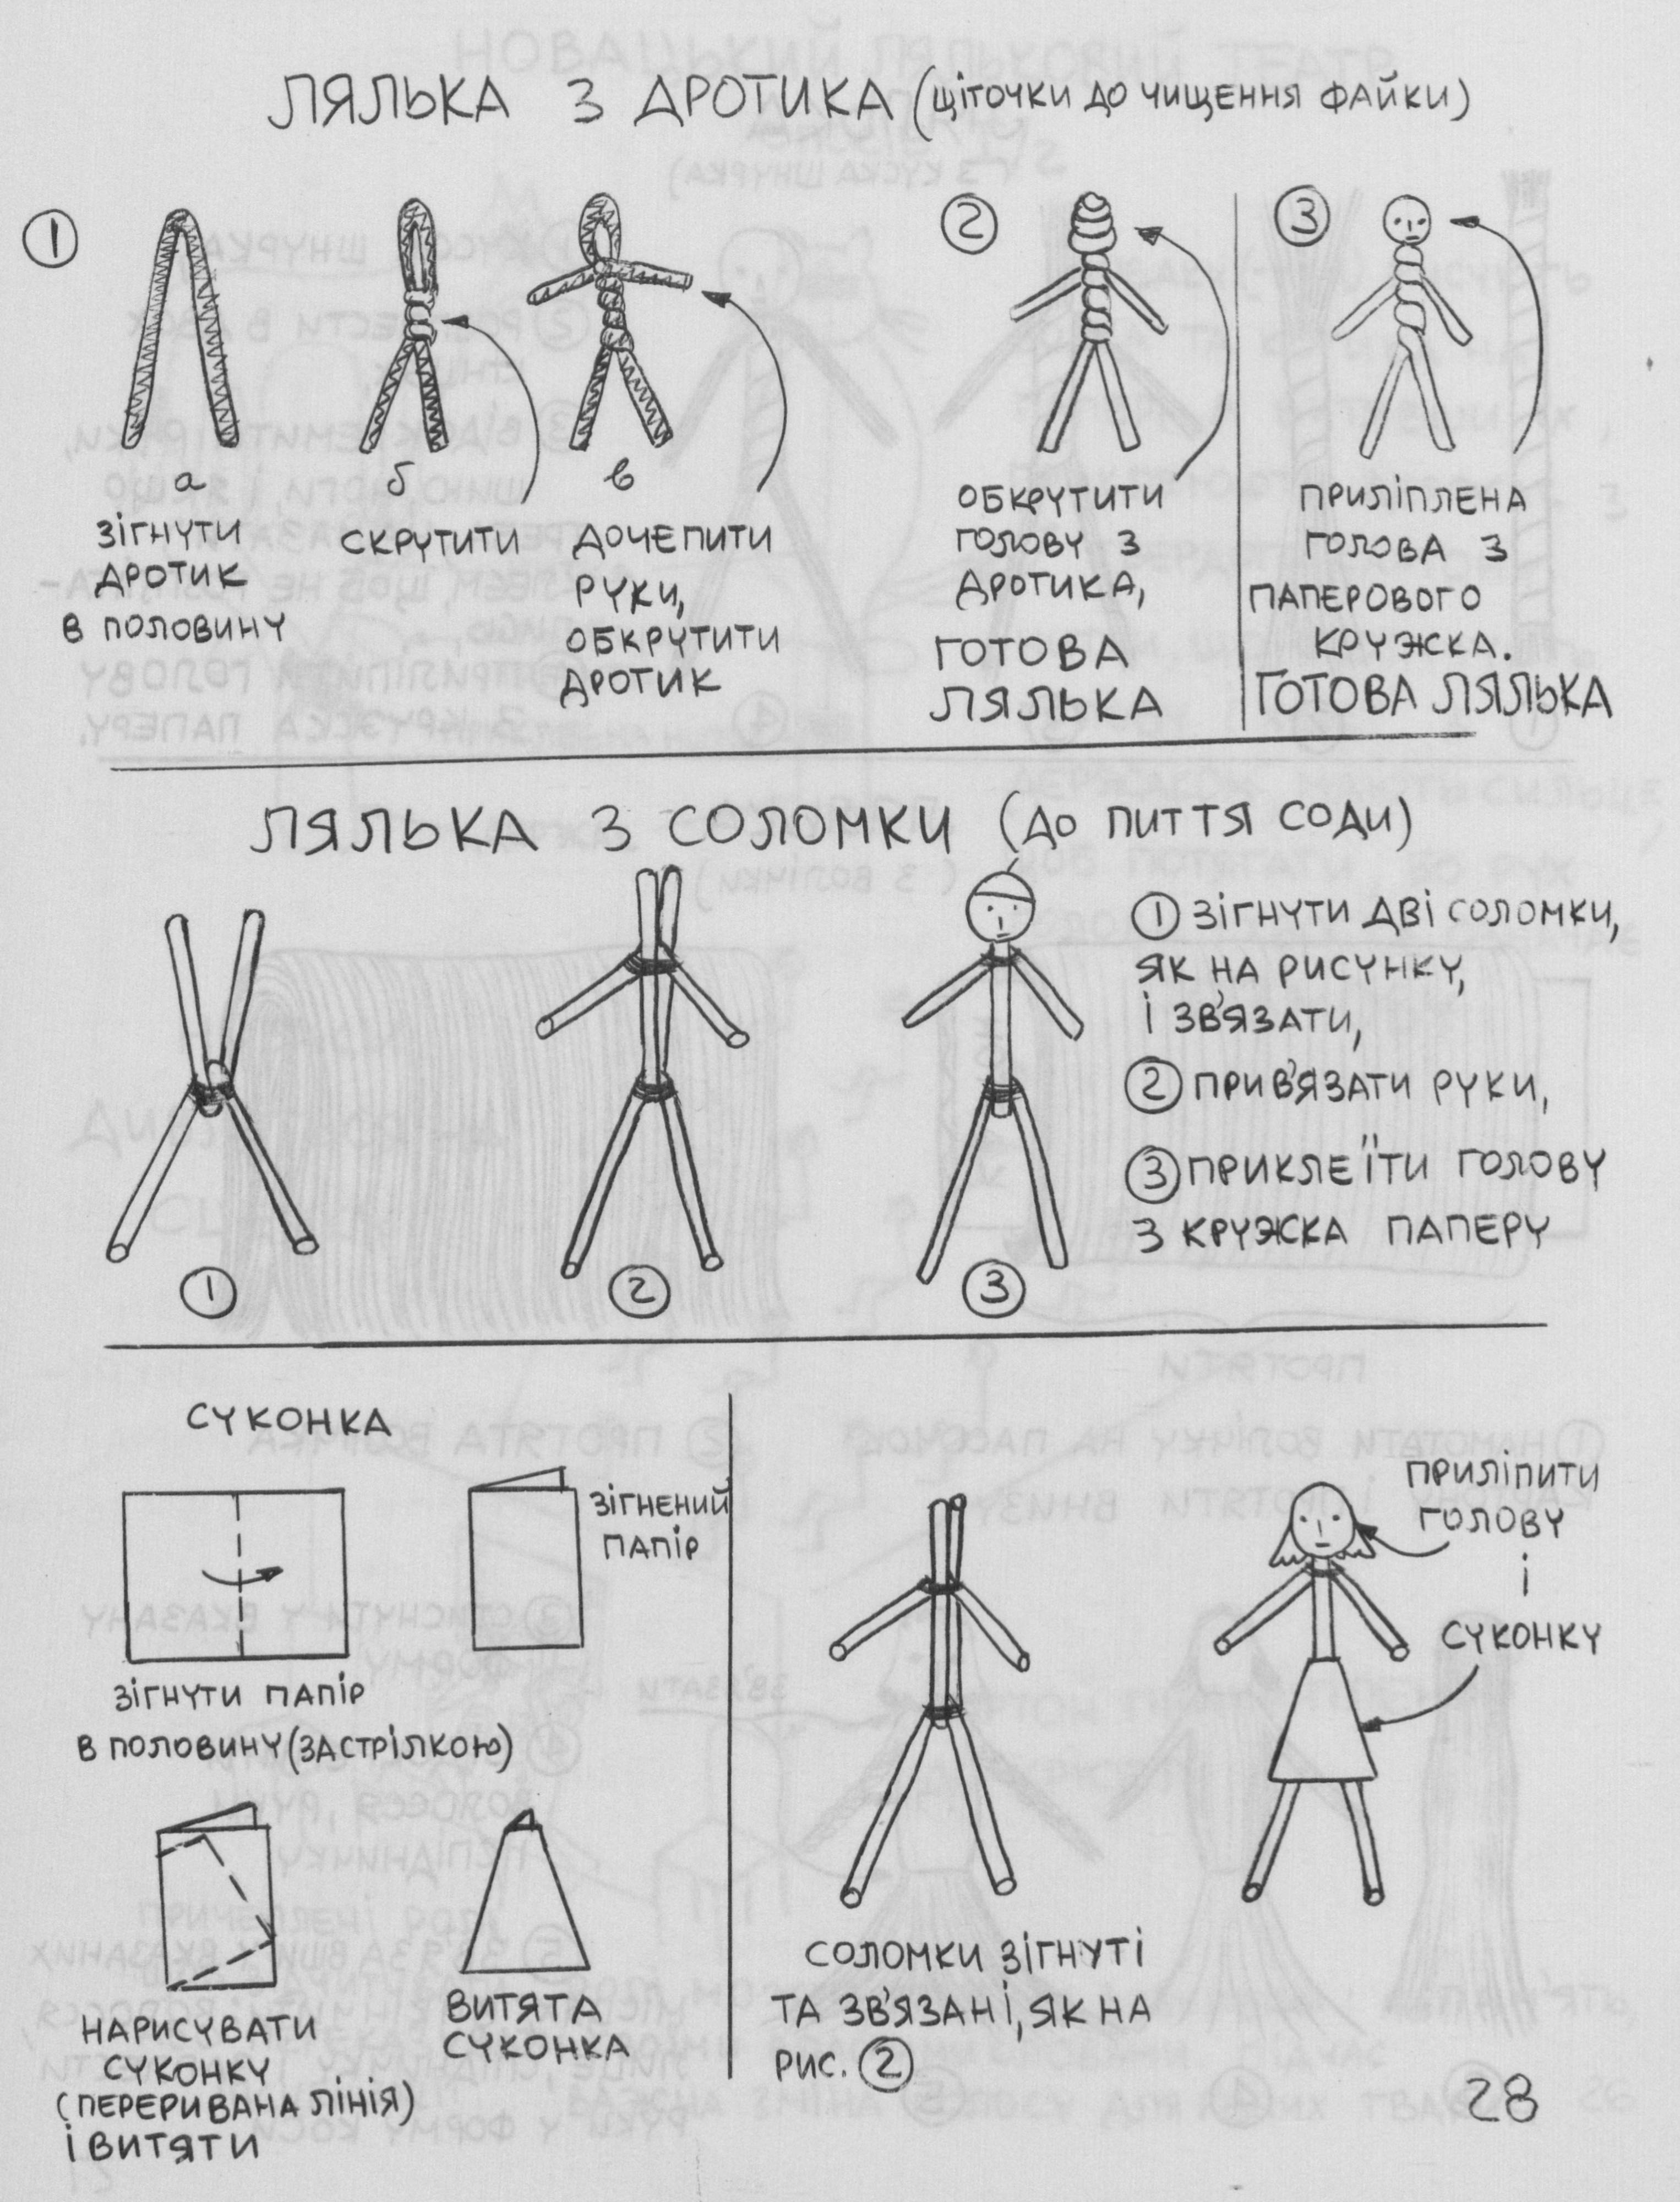 ЛЯЛЬКА З ДРОТИКА (ЩІТОЧКИ ДО ЧИЩЕННЯ ФАЙКИ)
1
а
ЗІГНУТИ
ДРОТИК
В ПОЛОВИНУ
б
СКРУТИТИ
в
ДОЧЕПИТИ
РУКИ,
ОБКРУТИТИ
ДРОТИК
2
ОБКРУТИТИ
ГОЛОВУ З
ДРОТИКА,
ГОТОВА
ЛЯЛЬКА
3
ПРИЛІПЛЕНА
ГОЛОВА З
ПАПЕРОВОГО
КРУЖКА.
ГОТОВА ЛЯЛЬКА
ЛЯЛЬКА З СОЛОМКИ (ДО ПИТТЯ СОДИ)
1
2
3
1 ЗІГНУТИ ДВІ СОЛОМКИ,
ЯК НА РИСУНКУ,
І ЗВ'ЯЗАТИ,
2 ПРИВ'ЯЗАТИ РУКИ,
3 ПРИКЛЕЇТИ ГОЛОВУ
З КРУЖКА ПАПЕРУ
СУКОНКА
ЗІГНУТИ ПАПІР
В ПОЛОВИНУ (ЗА СТРІЛКОЮ)
ЗІГНЕНИЙ
ПАПІР
НАРИСУВАТИ
СУКОНКУ
(ПЕРЕРИВАНА ЛІНІЯ)
І ВИТЯТИ
ВИТЯТА
СУКОНКА
СОЛОМКИ ЗІГНУТІ
ТА ЗВ'ЯЗАНІ, ЯК НА
РИС. 2
ПРИЛІПИТИ
ГОЛОВУ
І
СУКОНКУ
28